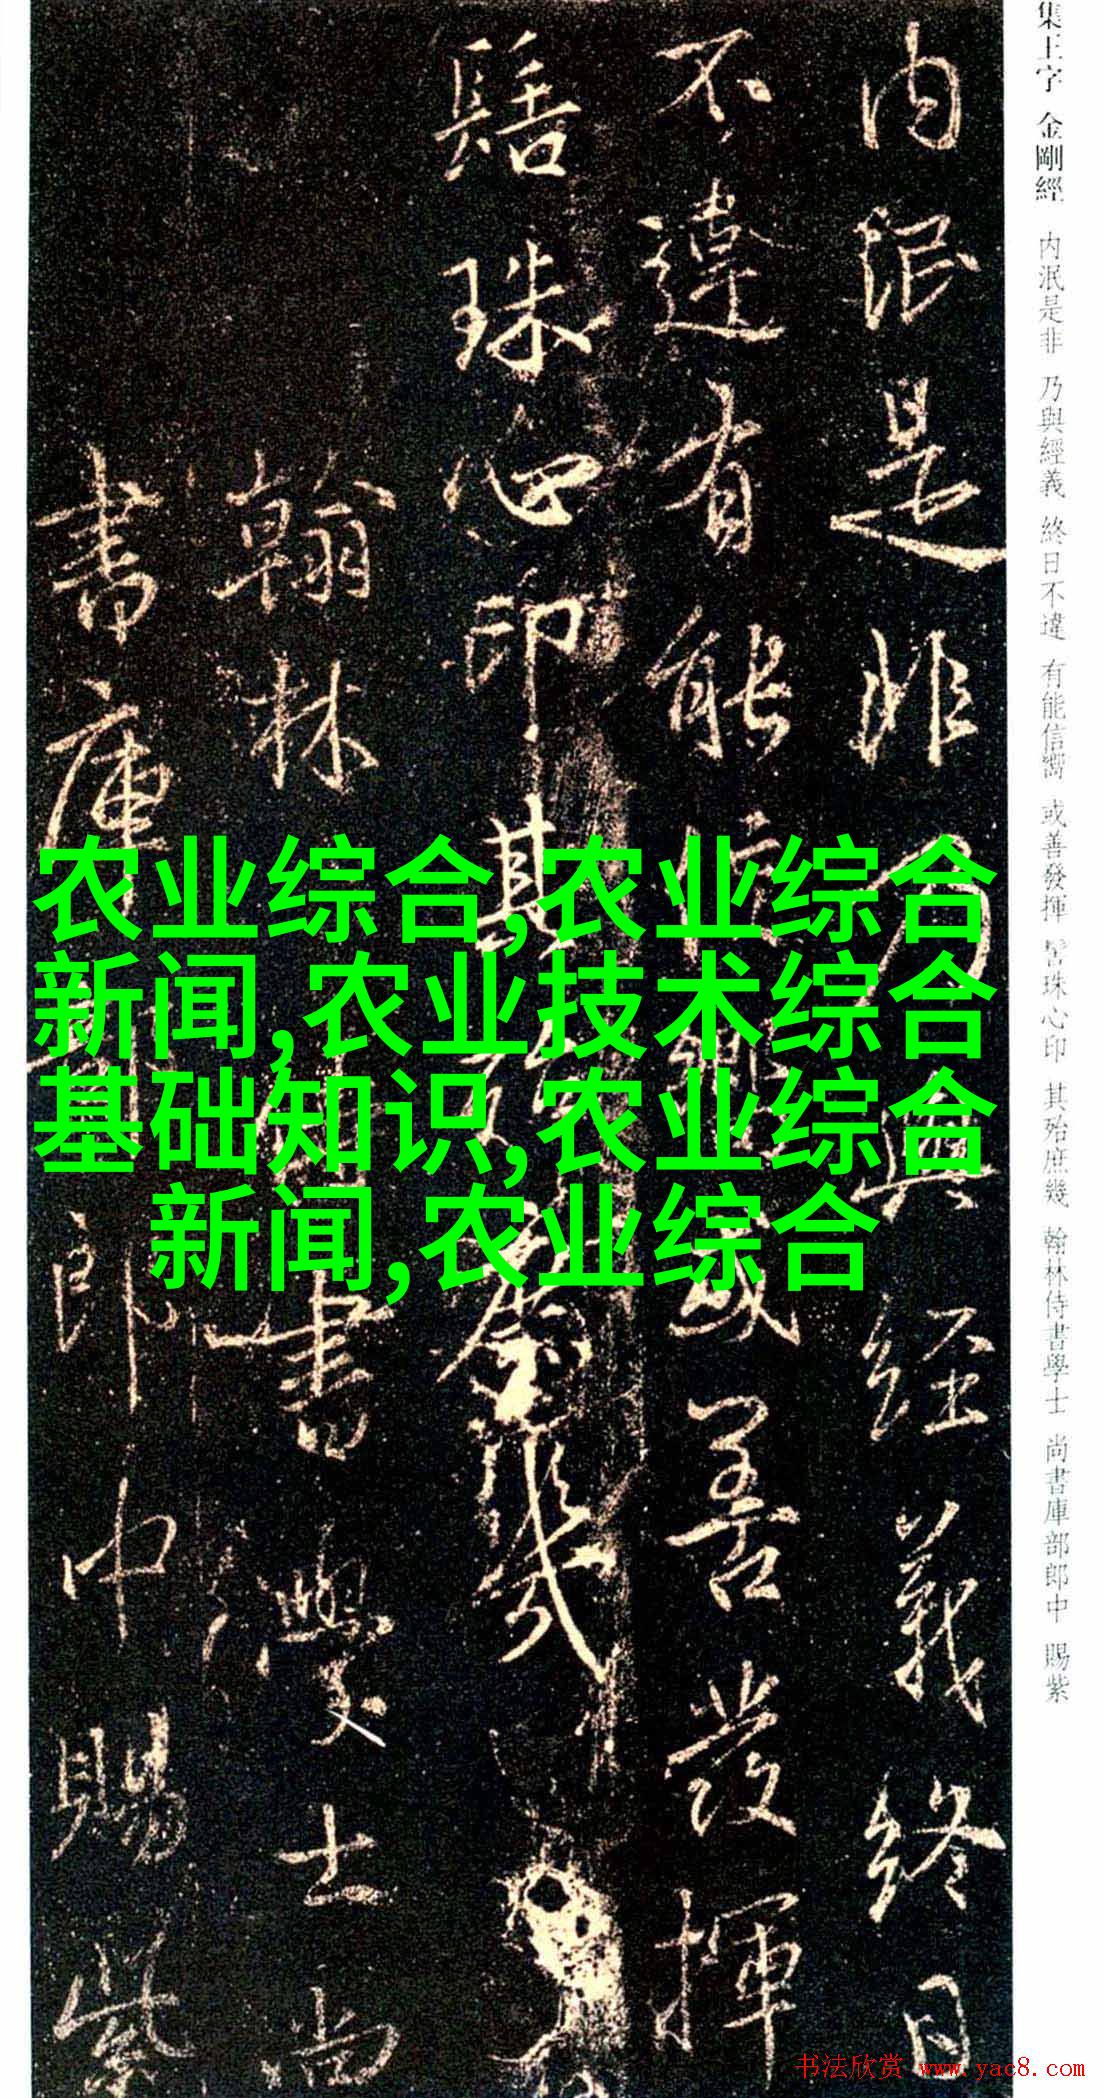 集王字 金剛經 内泯是非 乃與經義 終日不違 有能信嚮 或善發揮 髻珠心印 其殆庶幾 翰林侍書學士 尚書庫部郎中 賜紫
内泯是非乃與經義終日
不違有能信嚮或善發揮
髻珠心印其殆庶幾
翰林侍書學士尚
書庫部郎中賜紫
农业综合,农业综合
新闻,农业技术综合
基础知识,农业综合
新闻,农业综合
书法欣赏 www.yac8.com